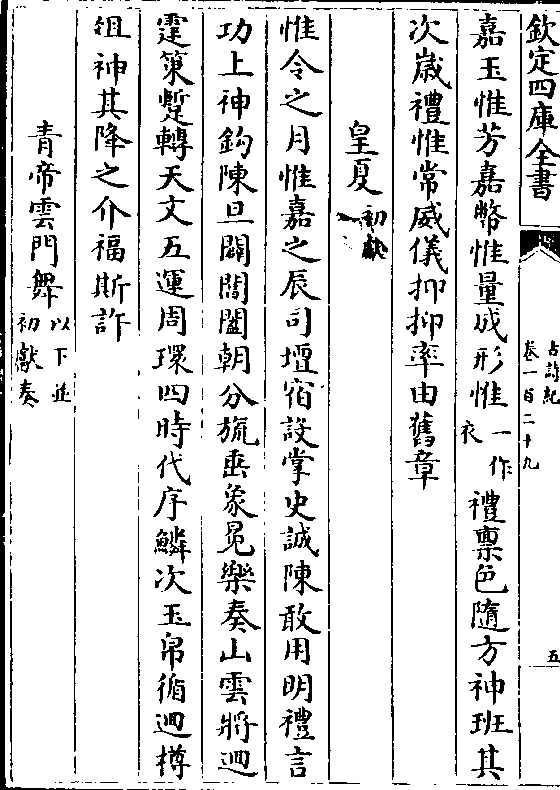 欽定四庫全書
古詩紀
卷一百二十九
五
嘉玉惟芳嘉幣惟量成形惟一作衣禮禀色隨方神班其
次嵗禮惟常威儀抑抑率由舊章
皇夏初獻
惟令之月惟嘉之辰司壇宿設掌史誠陳敢用明禮言
功上神鈎陳旦闢閶闔朝分旒垂象冕樂奏山雲將迴
霆策蹔轉天文五運周環四時代序鱗次玉帛循迴樽
俎神其降之介福斯許
青帝雲門舞以下並初獻奏